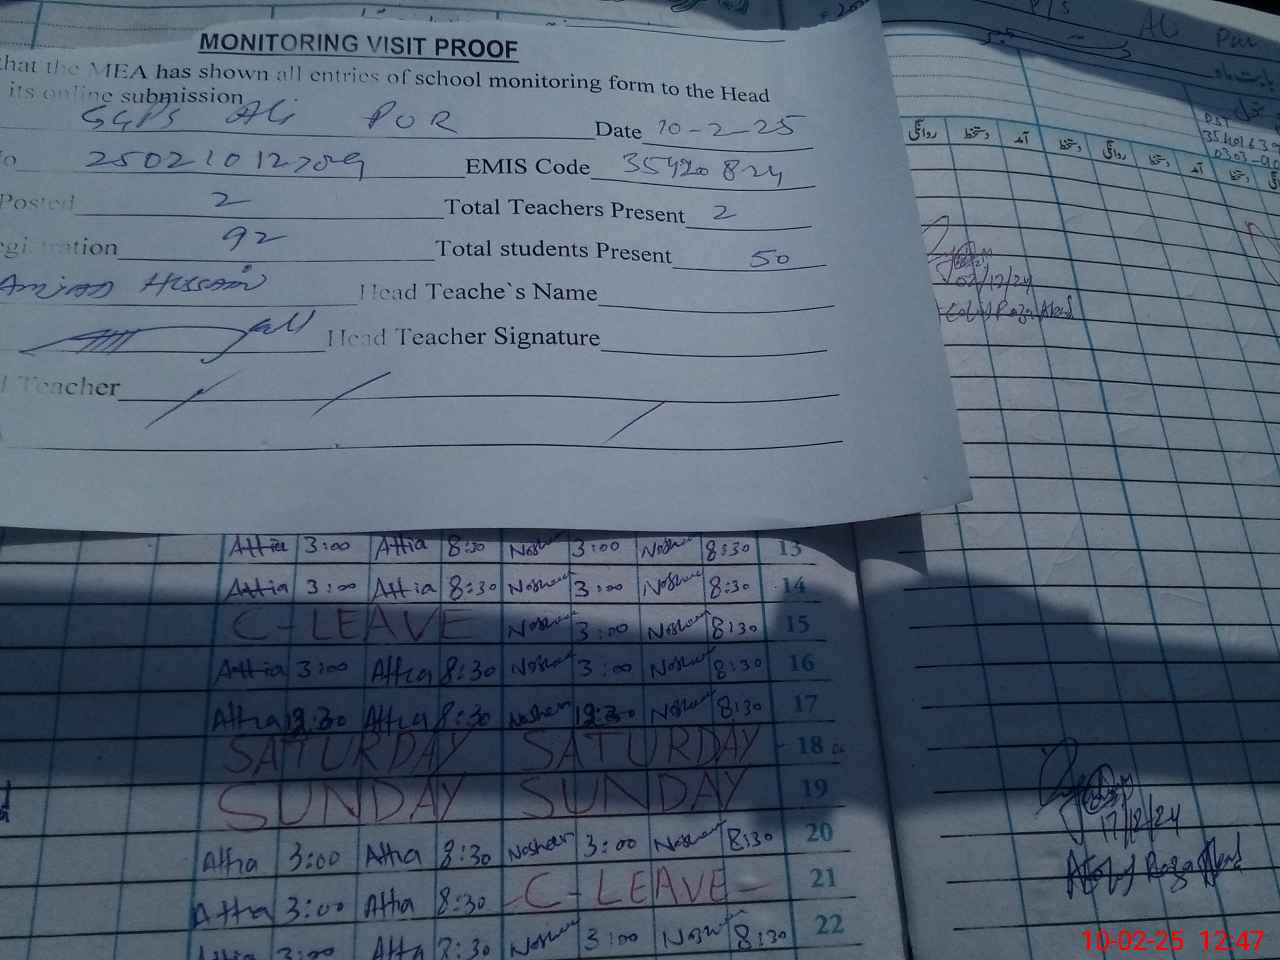 MONITORING VISIT PROOF
that the MEA has shown all entries of school monitoring form to the Head
its online submission
GGPS Ali PUR Date 10-2-25
No 250210122709 EMIS Code 35420824
Posted 2 Total Teachers Present 2
egistration 92 Total students Present 50
Amjad Hussain Head Teache`s Name
Head Teacher Signature
Teacher
روانگی دستخط آمد دستخط روانگی دستخط آمد دستخط
02/12/24
Attia 3:00 Attia 8:30 Nosheen 3:00 Nosheen 8:30 13
Attia 3:00 Attia 8:30 Nosheen 3:00 Nosheen 8:30 14
C-LEAVE Nosheen 3:00 Nosheen 8:30 15
Attia 3:00 Attia 8:30 Nosheen 3:00 Nosheen 8:30 16
Attia 12:30 Attia 8:30 Nosheen 12:30 Nosheen 8:30 17
SATURDAY SATURDAY 18
SUNDAY SUNDAY 19
Attia 3:00 Attia 8:30 Nosheen 3:00 Nosheen 8:30 20
Attia 3:00 Attia 8:30 C-LEAVE 21
Attia 3:00 Attia 8:30 Nosheen 3:00 Nosheen 8:30 22
17/12/24
10-02-25 12:47